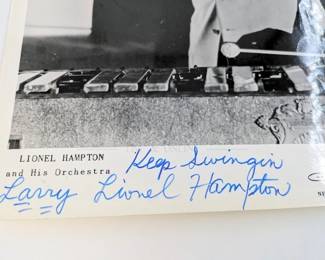 LIONEL HAMPTON
and His Orchestra
Keep Swingin
Larry Lionel Hampton